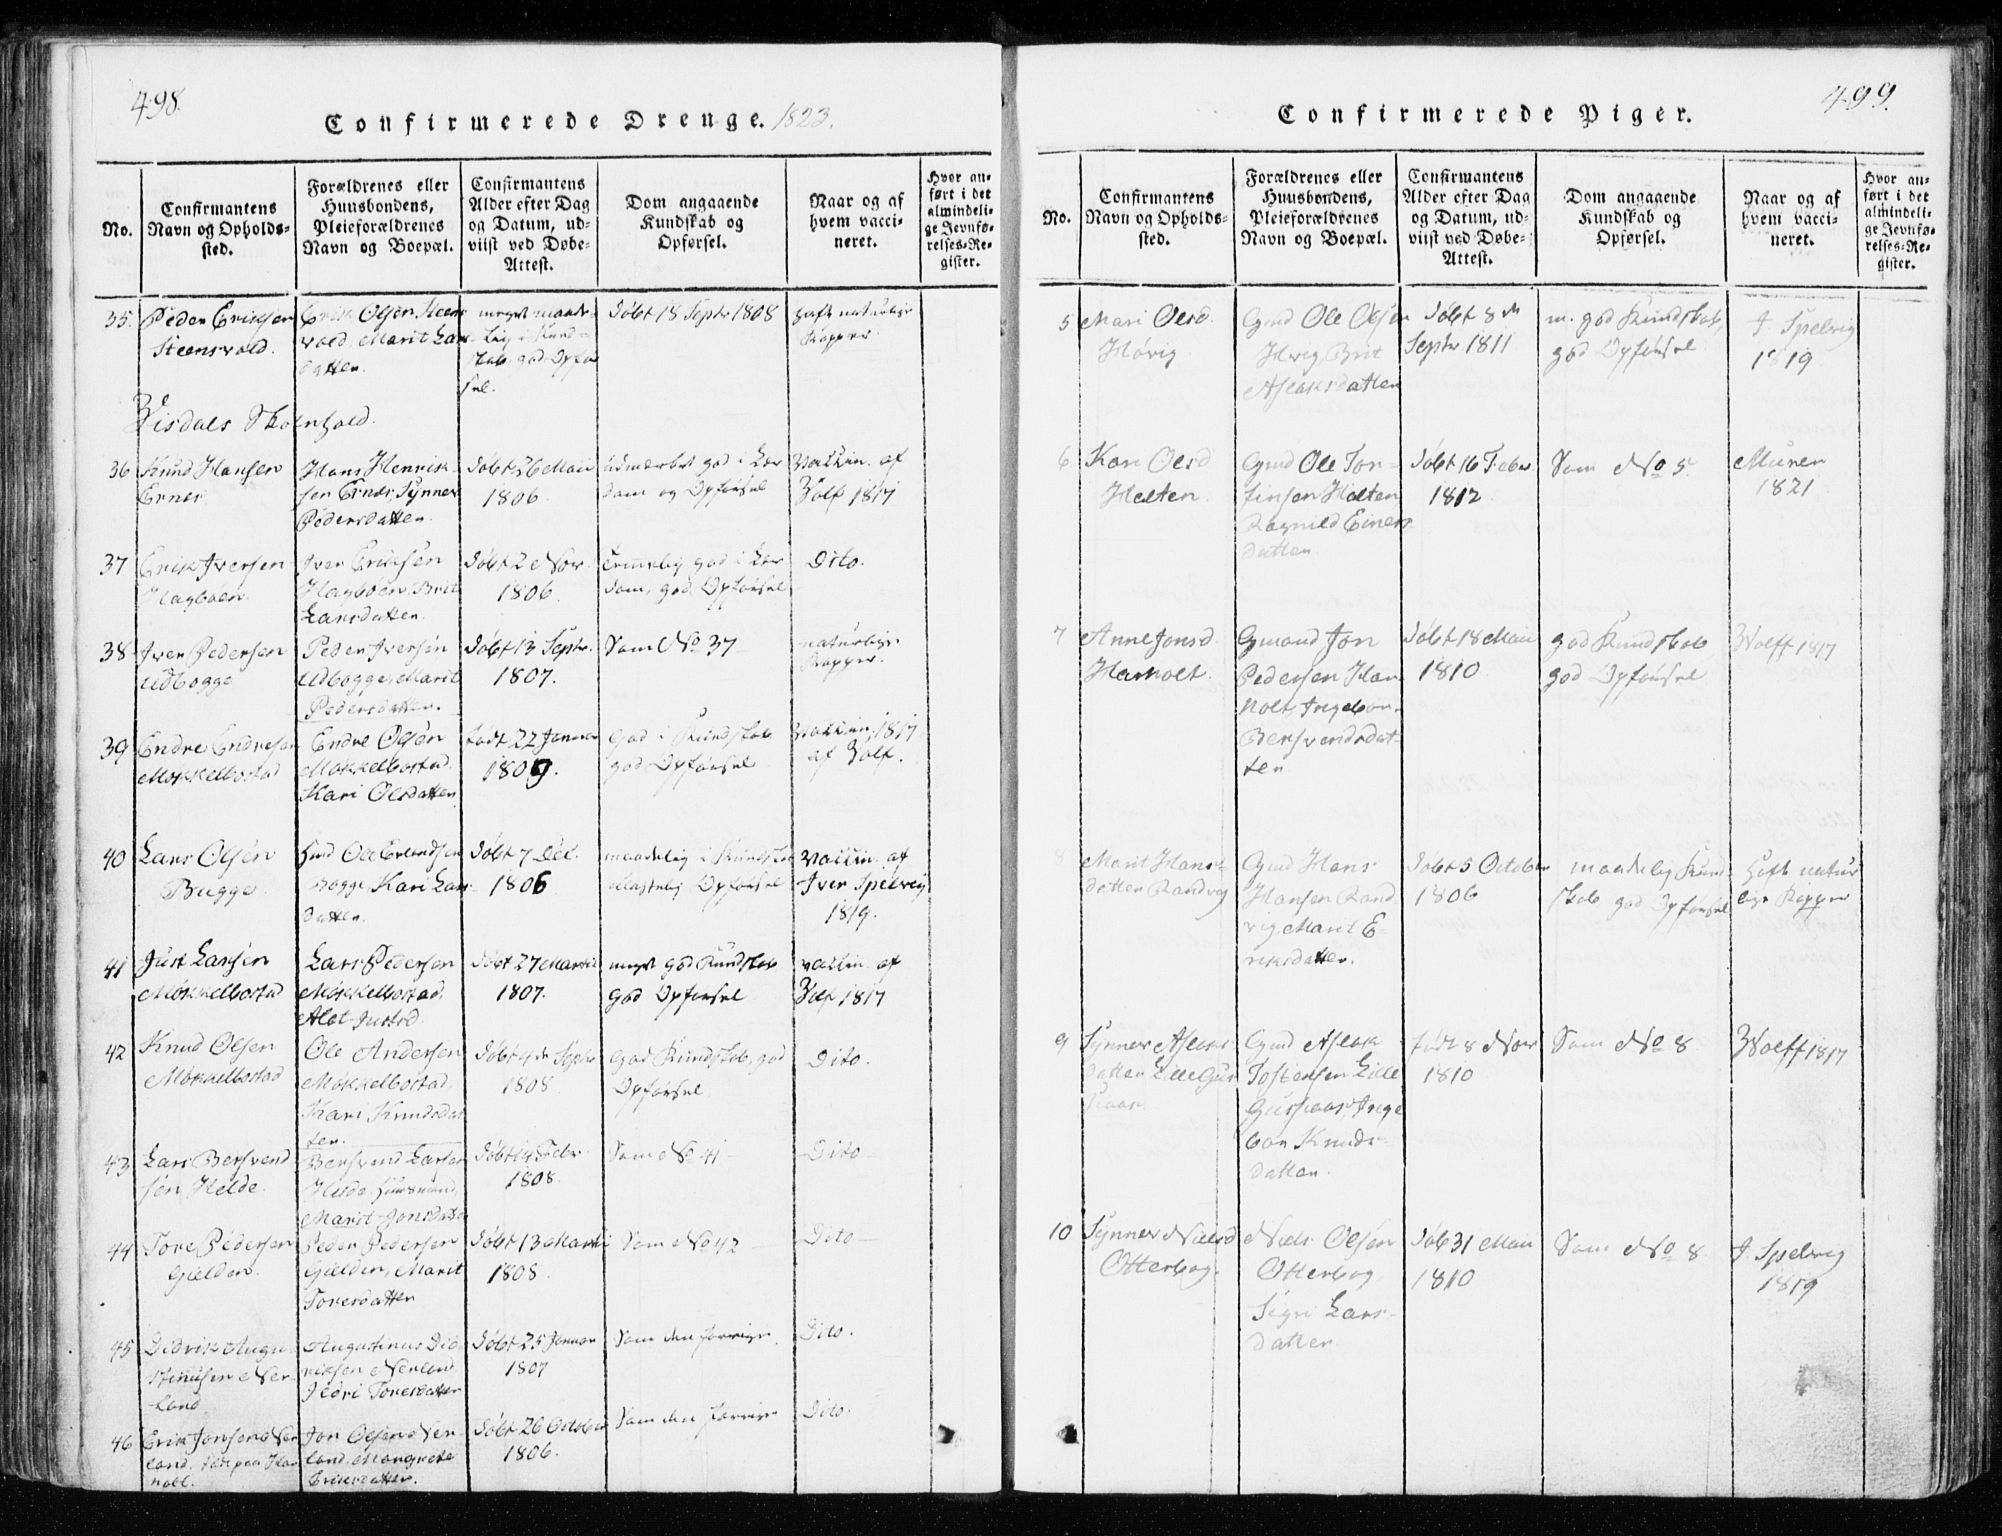 498.
Confirmerede Drenge. 1823.
No.
Confirmantens
Navn og Opholds-
sted.
Forældrenes eller
Huusbondens,
Pleieforældrenes
Navn og Boepæl.
Confirmantens
Alder efter Dag
og Datum, ud-
viist ved Døbe-
Attest.
Dom angaaende
Kundskab og
Opførsel.
Naar og af
hvem vacci-
neret.
Hvor an-
ført i det
almindeli-
ge Jevnfø-
relses-Re-
gister.
35.
Peder Eriksen
Steensvold.
Erik Olsen Steens
vold, Marit Lars
datter.
meget maade-
lig i Kund-
skab. god Opfør
sel.
døbt 18 Septr 1808
haft naturlige
Kopper.
Visdals Skolehold.
36
Knud Hansen
Ernes
Hans Henrik-
sen Ernes. Synnev
Pedersdatter.
døbt 26 Maii
1806.
udmærket god i Lær
dom og Opførsel
Vaccin. af
Wolf 1817
37
Erik Iversen
Hagboen.
Iver Eriksen
Hagboen. Brit
Larsdatter.
døbt 2 Nov.
1806.
temmelig god i Lær
dom, god Opførsel
Dito.
38
Iver Pedersen
Udbogge
Peder Iversen
Udbogge, Marit
Pedersdatter.
døbt 13 Septr.
1807.
Som No 37
naturlige
Kopper.
39
Endre Endresen
Mokkelbostad
Endre Olsen
Mokkelbostad.
Kari Olsdatter
født 22 Januar
1809.
God i Kundskab
god Opførsel
Vaccin. 1817
af Wolf.
40
Lars Olsen
Bugge
Ole Erlandsen
Bogge, Kari Lars-
datter.
døbt 7 Dec.
1806
maadelig i Kundskab
Opførsel
Vaccin. af
Iver Spelvig
1819.
41
Just Larsen
Mokkelbostad
Lars Pedersen
Mokkelbostad,
Alet Justsd.
døbt 27 Martii
1807.
meget god Kundskab
god Opførsel
vaccin. af
Wolf 1817
42
Knud Olsen
Mokkelbostad
Ole Andersen
Mokkelbostad.
Kari Knudsdat
ter.
døbt 4de Septr
1808
God Kundskab, god
Opførsel
Dito.
43
Lars Bersvend
sen Helde.
Bersvend Larsen
Helde Huusmand,
Marit Jonsdatter
døbt 14 Febr.
1808.
Som No 41
Dito
44
Tore Pedersen
Gielden.
Peder Pedersen
Gielden, Marit
Toresdatter
døbt 13 Martii
1808.
Som No 42
Dito
45
Didrik Augu
stinusen Ner-
land
Augustinus Did
riksen Nerland
Toresdatter
døbt 25 Januar
1807
Som den forrige
Dito.
46
Erik Jonsen Ner
land. paa Har
nolt.
Jon Olsen Ner-
land, Margrete
Eriksdatter.
døbt 26 October
1806.
Som den forrige
Dito.
499.
Confirmerede Piger.
No.
Confirmantens
Navn og Opholds-
sted.
Forældrenes eller
Huusbondens,
Pleieforældrenes
Navn og Boepæl.
Confirmantens
Alder efter Dag
og Datum, ud-
viist ved Døbe-
Attest.
Dom angaaende
Kundskab og
Opførsel.
Naar og af
hvem vacci-
neret.
Hvor an-
ført i det
almindeli-
ge Jevnfø-
relses-Re-
gister.
5
Mari Olsd.
Hovig
Gmd Ole Olsen
Hvig, Brit
Aslaksdatter
døbt 8de
Septr 1811
m. god Kundskab,
god Opførsel
I. Spelvig
1819
6
Kari Olsd
Holten
Gmd Ole Tor-
finsen Holten
Ragnild Einers
datter
døbt 16 Febr.
1812
Som No 5
Murer
1821
7
Anne Jonsd.
Harnolt.
Gmand Jon
Pedersen Har
nolt, Ingebor
Bersvendsdat-
ter
døbt 18 Maii
1810
god Kundskab
god Opførsel
Wolff 1817
8
Marit Hans-
datter Randvig
Gmd Hans
Hansen Rand
vig, Marit E-
riksdatter.
døbt 5 October
1806
maadelig Kund-
skab god Opførsel
Haft natur
lige Kopper
9
Synnev Aslaks
datter Lille Gus
iaas
Gmd Aslak
Tostensen Lille
Gusiaas, Inge
bor Knuds-
datter.
født 8 Nov
1810
Som No 8
Wolff 1817
10
Synnev Nielsd
Otterbog.
Niels Olsen
Otterbog
Sigri Lars-
datter
døb 31 Maii
1810
Som No 8
I. Spelvig
1819